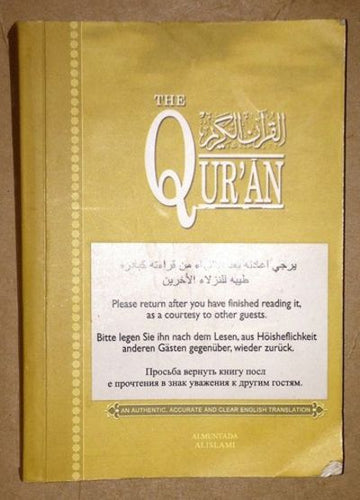 THE
القرآن الكريم
QUR'ĀN
يرجى اعادته بعد من قراءته كبادرة
طيبه للنزلاء الأخرين
Please return after you have finished reading it,
as a courtesy to other guests.
Bitte legen Sie ihn nach dem Lesen, aus Höisheflichkeit
anderen Gästen gegenüber, wieder zurück.
Просьба вернуть книгу посл
е прочтения в знак уважения к другим гостям.
AN AUTHENTIC, ACCURATE AND CLEAR ENGLISH TRANSLATION
ALMUNTADA
ALISLAMI